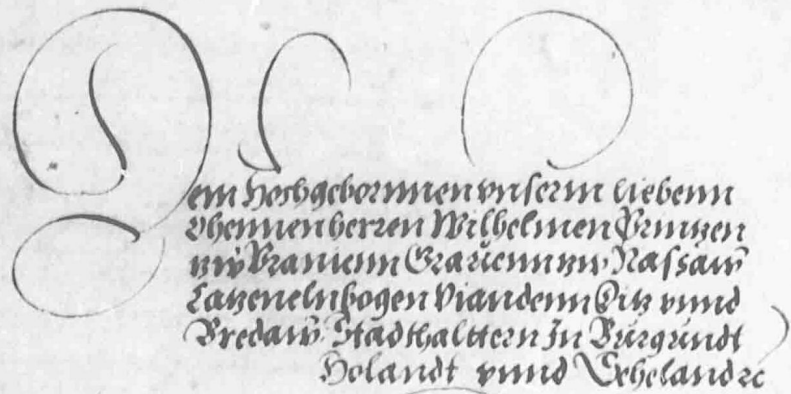 Dem Hochgebornnen vnserm liebenn
Ohemen herren Wilhelmen Printzen
zw Vranienn Grauenn zw Nassaw
Catzenelnbogen Viandenn Ditz vnnd
Bredaw Stadthalttern In Burgundt
Holandt vnnd Sehelandt ꝛc